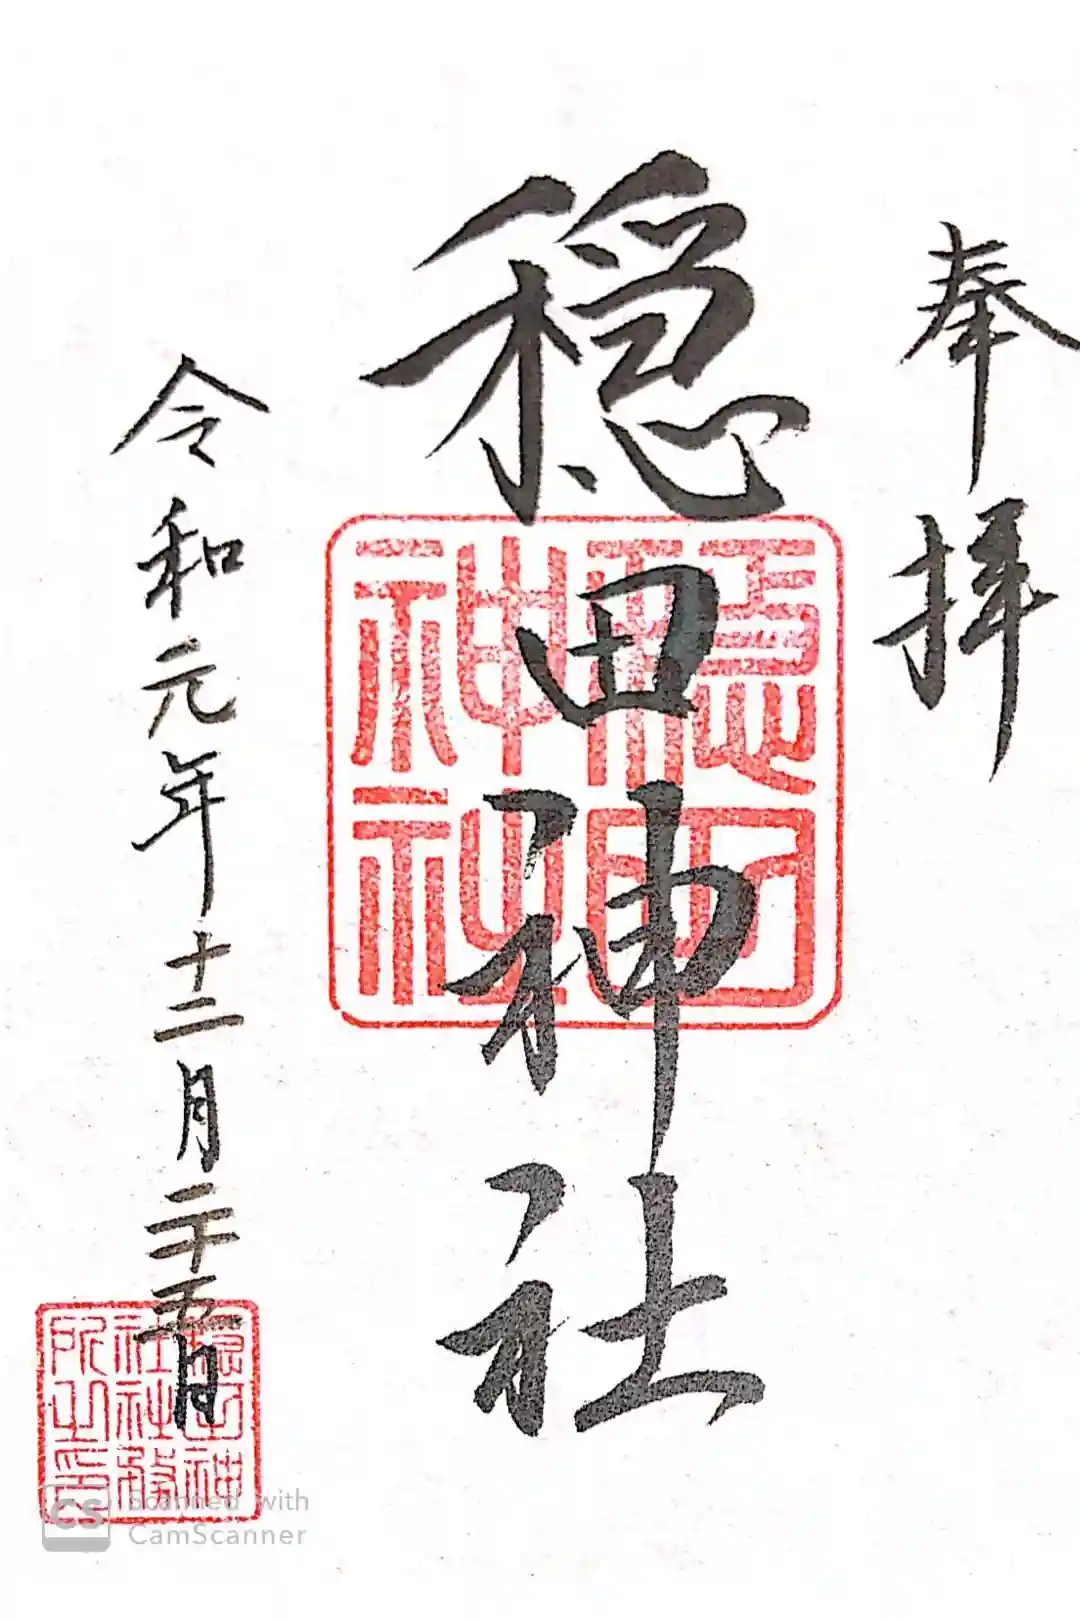 奉拝
穏田神社
穏田
神社
令和元年十二月二十五日
穏田神
社社務
所之印
CS Scanned with
CamScanner